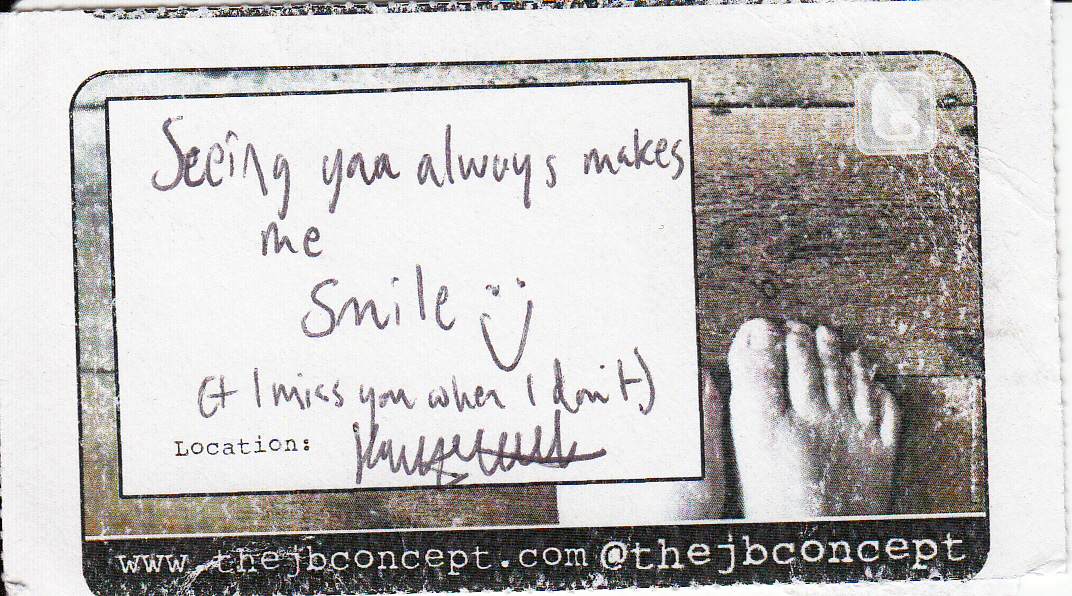 Seeing you always makes
me
smile :)
(+ I miss you when I don't)
Location:
www.thejbconcept.com @thejbconcept